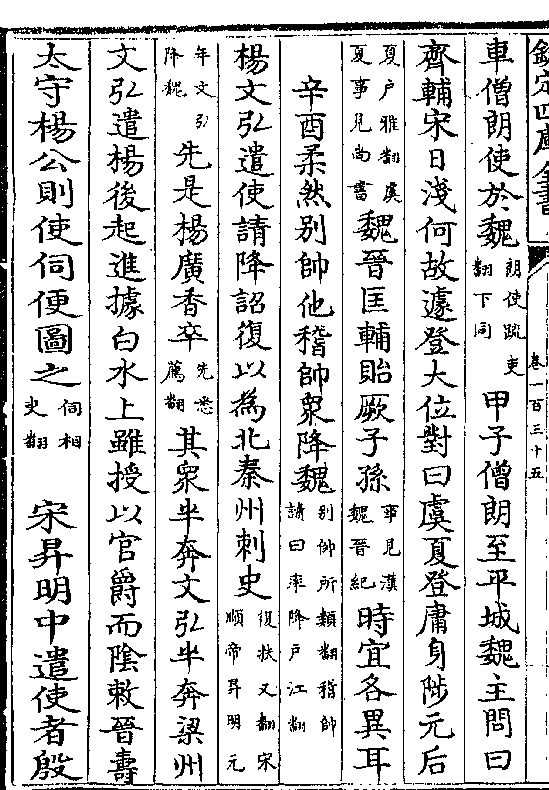 欽定四庫全書
卷一百三十五
車僧朗使於魏朗使疏吏翻下同甲子僧朗至平城魏主問曰
齊輔宋日淺何故遽登大位對曰虞夏登庸身陟元后
夏户雅翻虞夏事見尚書魏晉匡輔貽厥子孫事見漢魏晉紀時宜各異耳
辛酉柔然别帥他稽帥衆降魏别帥所類翻稽帥讀曰率降户江翻
楊文弘遣使請降詔復以為北秦州刺史復扶又翻宋順帝昇明元
年文弘降魏先是楊廣香卒先悉薦翻其衆半奔文弘半奔梁州
文弘遣楊後起進據白水上雖授以官爵而陰敕晉壽
太守楊公則使伺便圖之伺相吏翻 宋昇明中遣使者殷